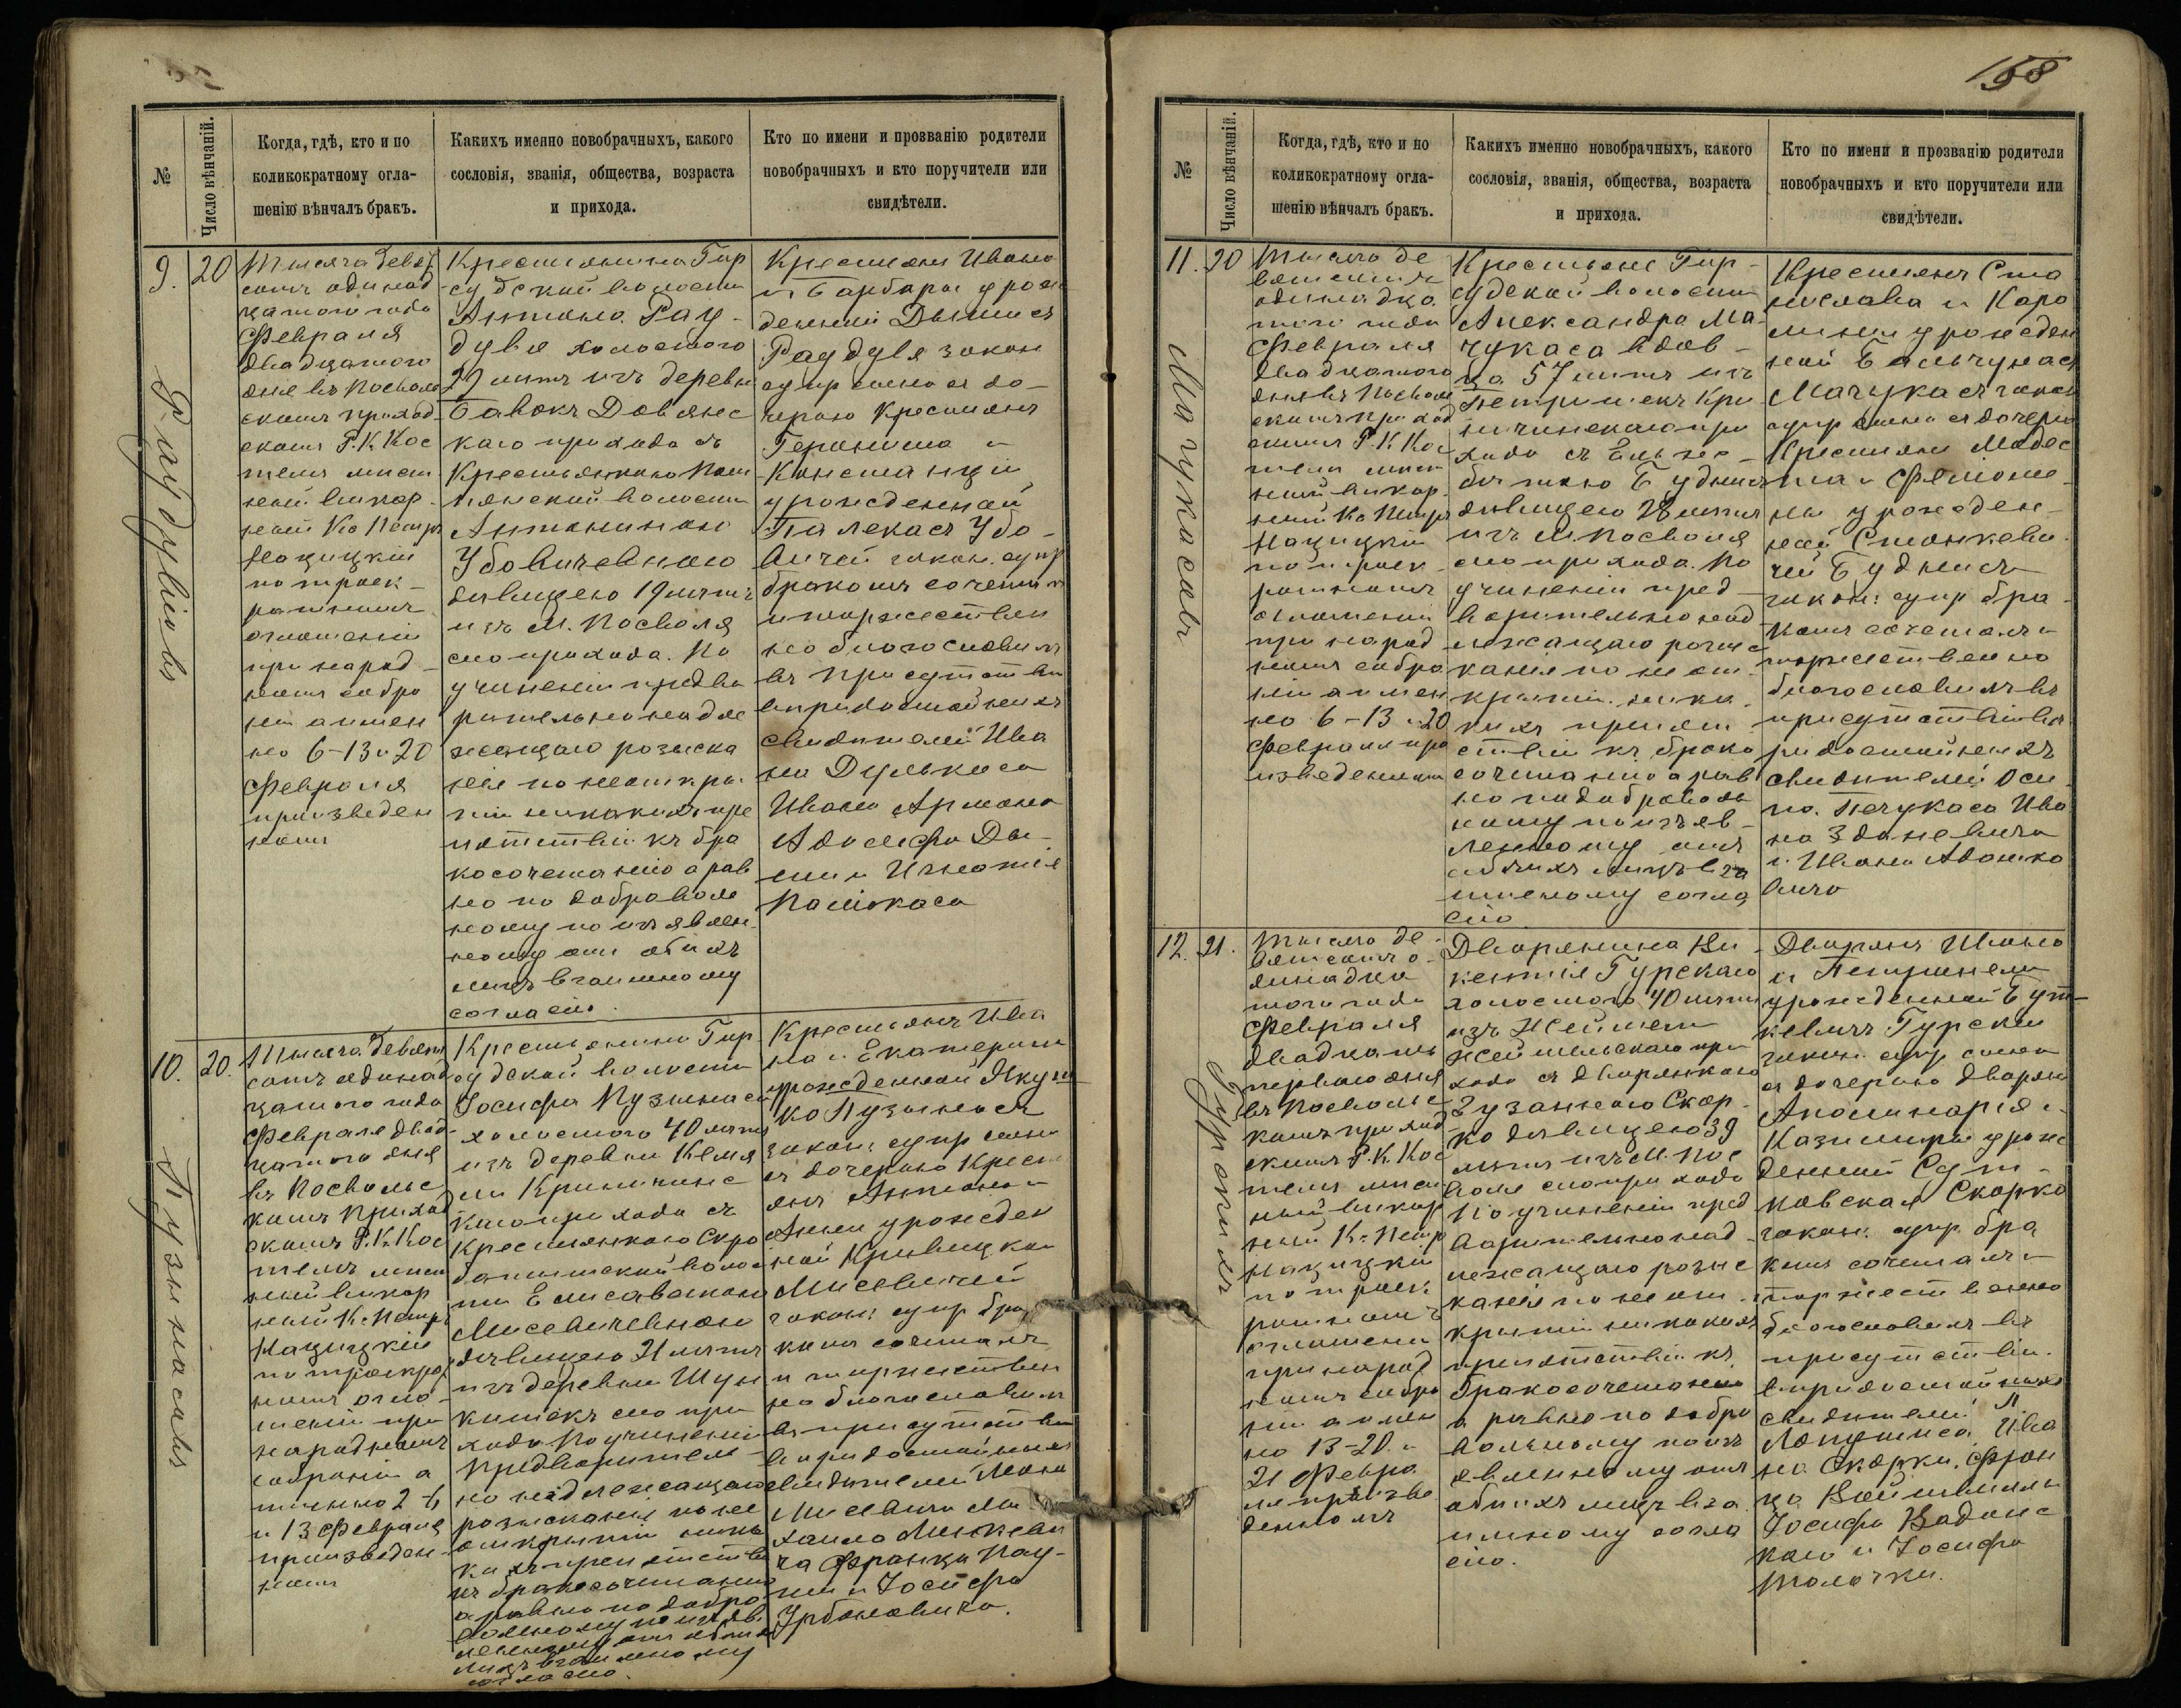 №
Число вѣнчаній.
Когда, гдѣ, кто и по
коликократному огла-
шенію вѣнчалъ бракъ.
Какихъ именно новобрачныхъ, какого
сословія, званія, общества, возраста
и прихода.
Кто по имени и прозванію родители
новобрачныхъ и кто поручители или
свидѣтели.
9.
20
Раудувіовъ
Тысяча девят
сотъ одинад
цатого года
Февраля
двадцатого
дня въ Посволь
скомъ приход
скомъ Р. К. Кос
телѣ мѣст
ный викар
ный Кс Петръ
Нацицкій
по троек-
ратномъ
оглашеніи
при народ-
номъ собра
ніи а имен
но 6-13 и 20
Февраля
произведен
номъ
Крестьянина Гир
судской волости
Антона Рау-
дувя холостого
27 лѣтъ изъ деревн
Бавокъ Довянс
каго прихода съ
Крестьянкою Пом
пянской волости
Антониною
Убовичевною
дѣвицею 19 лѣтъ
изъ М. Посволя
сего прихода. По
учиненіи предва
рительно надле
жащаго розыска
нія по неоткры
тіи никакихъ пре
пятствій къ бра
косочетанію а рав
но по доброволь
ному по изъявлен
ному отъ обоихъ
лицъ взаимному
согласію.
Крестьянъ Ивана
и Барбары урож
денной Дынисъ
Раудувя закон
супр сына съ до-
черью Крестьянъ
Геронима и
Констанціи
урожденной
Палекасъ Убо-
вичей закон. супр
бракомъ сочеталъ
и торжествен
но благословилъ
въ присутствіи
вѣридостойныхъ
свидѣтелей Ива
на Дулькаса
Ивана Армана
Адольфа Ды-
ни и Игнатія
Палюкаса
10.
20.
Пузынасовъ
Тысяча девят
сотъ одинад
цатого года
Февраля двад-
цатого дня
въ Посвольс
комъ приход
скомъ Р. К. Кос
телѣ мѣст
ный викар
ный К. Петръ
Нацицкій
по троекрат
номъ огла-
шеніи при
народномъ
собраніи а
именно 2-6
и 13 Февраля
произведен-
номъ
Крестьянина Гир
судской волости
Іосифа Пузынаса
холостого 40 лѣтъ
изъ деревни Кемя
ни Криничинс
каго прихода съ
Крестьянкою Скро
ботишской волос
ти Елисаветою
Мисевичевною
дѣвицею 21 лѣтъ
изъ деревни Шун
кишекъ сего при
хода По учиненіи
предварител
но надлежащаго
розысканія по не
открытіи ника
кихъ препятствій
къ бракосочетанію
а равно по добро
вольному по изъяв
ленному отъ обоихъ
лицъ взаимному
согласію.
Крестьянъ Ива
на и Екатерины
урожденной Якут
ко Пузынасъ
закон: супр сына
съ дочерью Крест
янъ Антона и
Анны урожден
ной Кривицкой
Мисевичей
закон: супр бра
комъ сочеталъ
и торжествен
но благословилъ
въ присутствіи
вѣридостойныхъ
свидѣтелей
Мисевича Ми
хаила Минкеви
ча Франца Пау-
ли и Іосифа
Урбановича.
158
№
Число вѣнчаній.
Когда, гдѣ, кто и по
коликократному огла-
шенію вѣнчалъ бракъ.
Какихъ именно новобрачныхъ, какого
сословія, званія, общества, возраста
и прихода.
Кто по имени и прозванію родители
новобрачныхъ и кто поручители или
свидѣтели.
11.
20
Мачукасовъ
Тысяча де
вятсотъ
одинадца
того года
Февраля
двадцатого
дня въ Посволь
скомъ приход
скомъ Р. К. Кос
телѣ мѣст
ный викар
ный Кс Петръ
Нацицкій
по троек
ратномъ
оглашеніи
при народ
номъ собра
ніи а имен
но 6-13 и 20
Февраля про
изведенномъ
Крестьянина Гир-
судской волости
Александра Ма-
чукаса вдов-
ца 57 лѣтъ изъ
Петришекъ Кри
ничинскаго при
хода съ Ельже-
бѣтою Будныс
дѣвицею 28 лѣтъ
изъ М. Посволя
сего прихода. По
учиненіи пред
варительно над
лежащаго розыс
канія по неот
крытіи ника
кихъ препят
ствій къ брако
сочетанію а рав
но по доброволь
ному по изъяв-
ленному отъ
обоихъ лицъ вза
имному согла
сію
Крестьянъ Ста
нислава и Каро
лины урожден
ной Бальчунасъ
Мачукасъ закон
супр сына съ дочерью
Крестьянъ Модес
та и Филоме
ны урожден-
ной Станкеви
чей Буднисъ
закон: супр бра-
комъ сочеталъ и
торжественно
благословилъ въ
присутствіи вѣ
ридостойныхъ
свидѣтелей Оси
па Печукаса Ива
на Здановича
и Ивана Адамко
вича
12.
21.
Гурскихъ
Тысяча де-
вятсотъ о-
динадца
того года
Февраля
двадцать
перваго дня
въ Посвольс
комъ приход
скомъ Р. К. Кос
телѣ мѣст
ный викар
ный К. Петр
Нацицкій
по троек
ратномъ
оглашеніи
при народ
номъ собра
ніи а имен
но 13-20 и
21 Февра
ля произве
денномъ
Дворянина Ви
кентія Гурскаго
холостого 40 лѣтъ
изъ Жеймель
Жеймельскаго при
хода съ дворянкою
Зузанною Скор-
ко дѣвицею 39
лѣтъ изъ М. Пос
воля сего прихода
По учиненіи пред
варительно над
лежащаго розыс
канія по неот
крытіи никакихъ
препятствій къ
бракосочетанію
а равно по добро
вольному по изъ
явленному отъ
обоихъ лицъ вза
имному согла
сію.
Дворянъ Ивана
и Петронели
урожденной Бут-
кевичъ Гурскихъ
закон. супр сына
съ дочерью Дворян
Аполинарія и
Казимиры урож
денной Сут-
ковская Скорко
закон. супр бра
комъ сочеталъ и
торжественно
благословилъ въ
присутствіи
вѣридостойныхъ
свидѣтелей
Лопушиса, Ива
на Скорки, Фран
ца
Іосифа Вадонс
каго и Іосифа
Толочки.